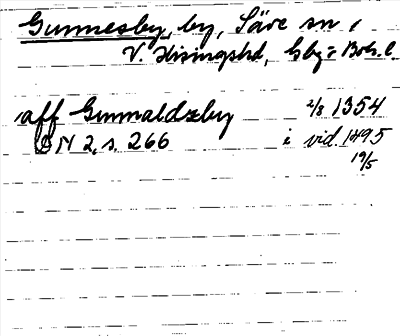 Gunnesby, by, Säve sn,
V. Hisingshd, Gbg o Boh. l.
aff Gunnaldzby 2/8 1354
DN 2, s. 266 i vid. 1495
19/5